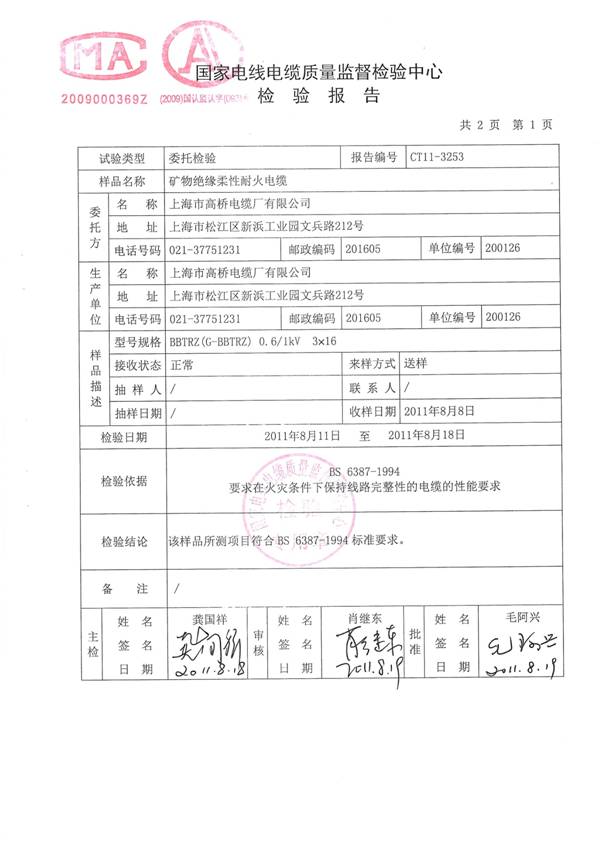 MA
A
2009000369Z (2009)国认监认字(093)
国家电线电缆质量监督检验中心
检 验 报 告
共 2 页 第 1 页
试验类型 委托检验 报告编号 CT11-3253
样品名称 矿物绝缘柔性耐火电缆
委托方
名 称 上海市高桥电缆厂有限公司
地 址 上海市松江区新浜工业园文兵路212号
电话号码 021-37751231 邮政编码 201605 单位编号 200126
生产单位
名 称 上海市高桥电缆厂有限公司
地 址 上海市松江区新浜工业园文兵路212号
电话号码 021-37751231 邮政编码 201605 单位编号 200126
样品描述
型号规格 BBTRZ(G-BBTRZ) 0.6/1kV 3×16
接收状态 正常 来样方式 送样
抽 样 人 / 联 系 人 /
抽样日期 / 收样日期 2011年8月8日
检验日期 2011年8月11日 至 2011年8月18日
检验依据 BS 6387-1994
要求在火灾条件下保持线路完整性的电缆的性能要求
检验结论 该样品所测项目符合BS 6387-1994标准要求。
备 注 /
主检 姓 名 龚国祥 审核 姓 名 肖继东 批准 姓 名 毛阿兴
签 名 龚国祥 签 名 肖继东 签 名 毛阿兴
日 期 2011.8.18 日 期 2011.8.19 日 期 2011.8.19